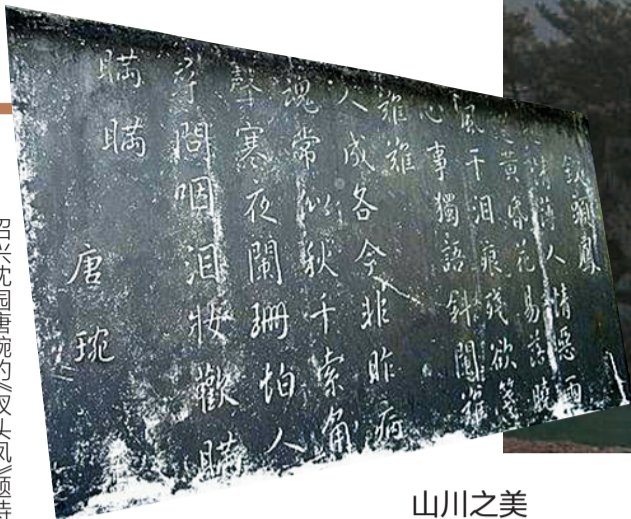 釵頭鳳
世情薄人情惡雨
送黃昏花易落曉
風干泪痕殘欲箋
心事獨語斜闌難
難難
人成各今非昨病
魂常似秋千索角
聲寒夜闌珊怕人
尋問咽泪妝歡瞞
瞞瞞
唐琬
绍兴沈园唐琬的《钗头凤》题诗
山川之美